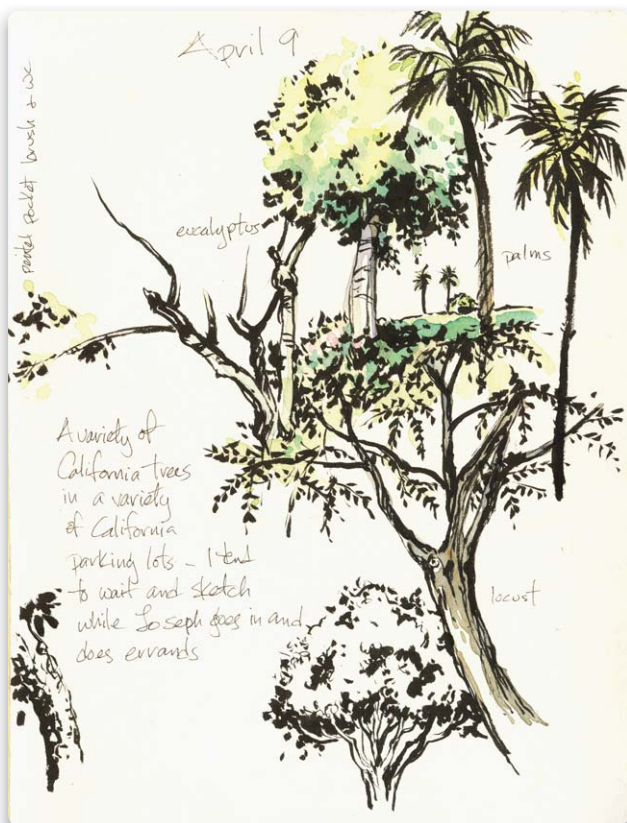 April 9
pentel pocket brush & wc
eucalyptus
palms
A variety of
California trees
in a variety
of California
parking lots - I tend
to wait and sketch
while Joseph goes in and
does errands
locust